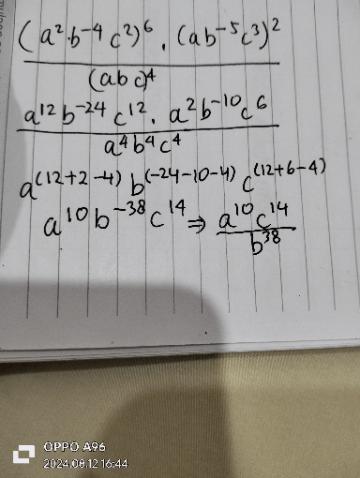 (a²·b⁻⁴c²)⁶ · (ab⁻⁵c³)²
(abc)⁴
a¹²b⁻²⁴c¹² · a²b⁻¹⁰c⁶
a⁴b⁴c⁴
a⁽¹²⁺²⁻⁴⁾ b⁽⁻²⁴⁻¹⁰⁻⁴⁾ c⁽¹²⁺⁶⁻⁴⁾
a¹⁰b⁻³⁸c¹⁴ ⇒ a¹⁰c¹⁴
b³⁸
OPPO A96
2024.08.12 16:44